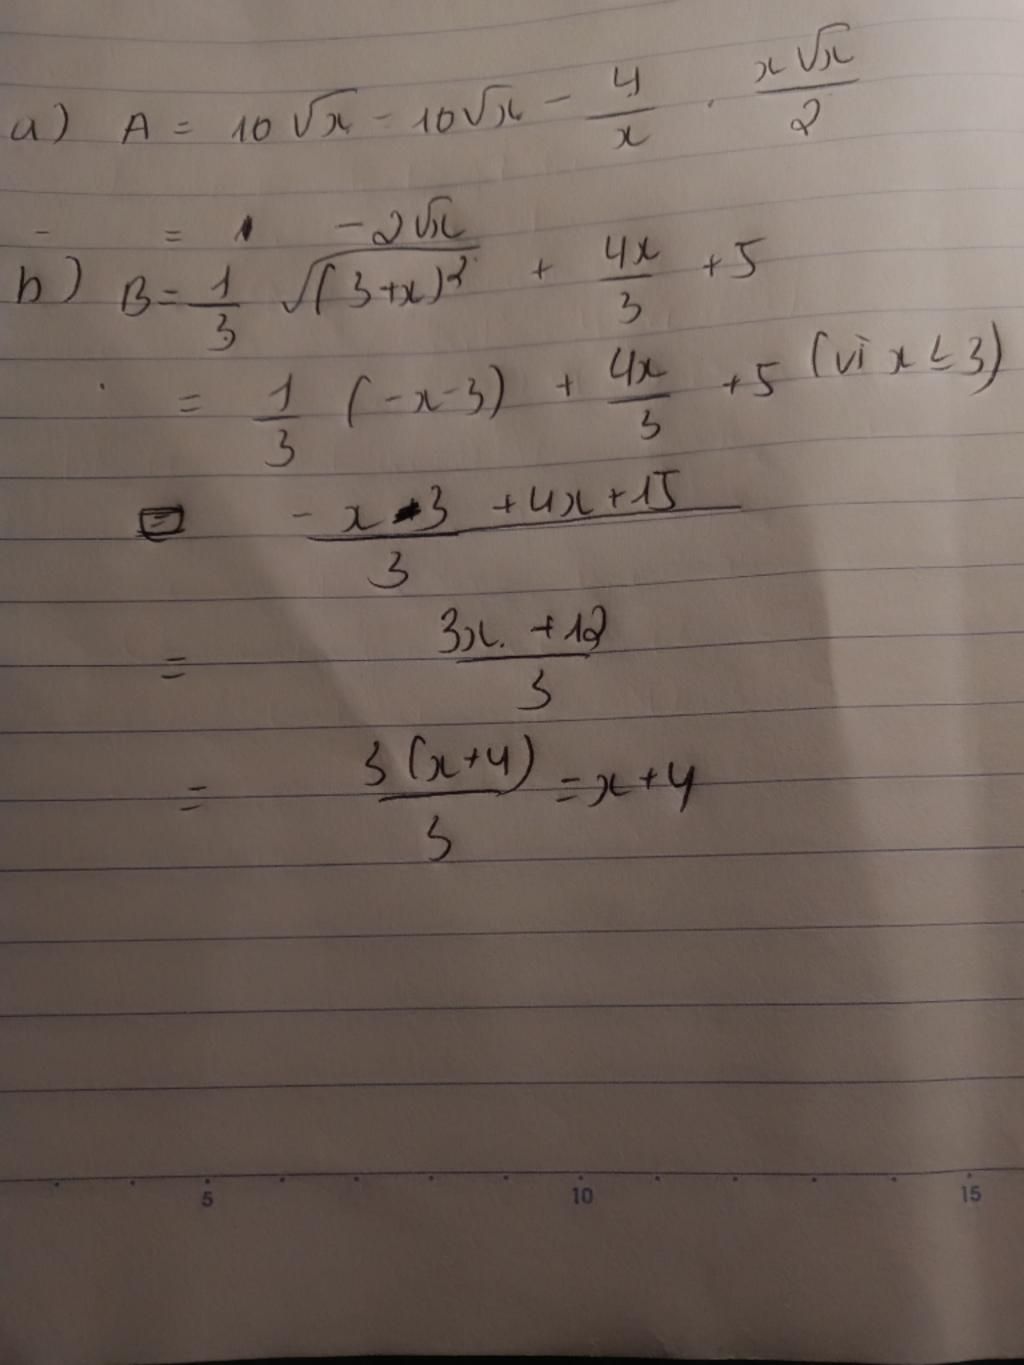 a) A = 10√x - 10√x - 4/x . x√x/2
= -2√x
b) B = 1/3 √(3+x)² + 4x/3 + 5
= 1/3 (-x-3) + 4x/3 + 5 (vì x ≤ 3)
= -x-3+4x+15/3
= 3x+12/3
= 3(x+4)/3 = x+4
5 10 15